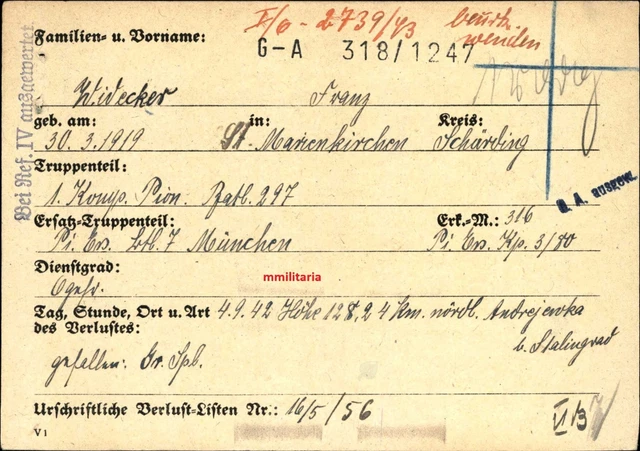 I/o - 2739/43 beurk.
wenden
Familien- u. Vorname: G-A 318/1247
Widecker Franz
geb. am: in: Kreis:
30.3.1919 St. Marienkirchen Schärding
Truppenteil:
1. Komp. Pion. Batl. 297
Ersatz-Truppenteil: Erk.-M.: 316
Pi. Ers. Btl. 7 München Pi. Ers. Kp. 3/80
Dienstgrad:
Ogefr.
mmilitaria
Tag, Stunde, Ort u. Art 4.9.42 Höhe 128,2 4 km. nördl. Andrejewka
des Verlustes: b. Stalingrad
gefallen: Gr. Spl.
Urschriftliche Verlust-Listen Nr.: 16/5/56
V 1
Bei Ref. IV ausgewertet
G. A. ausgew.